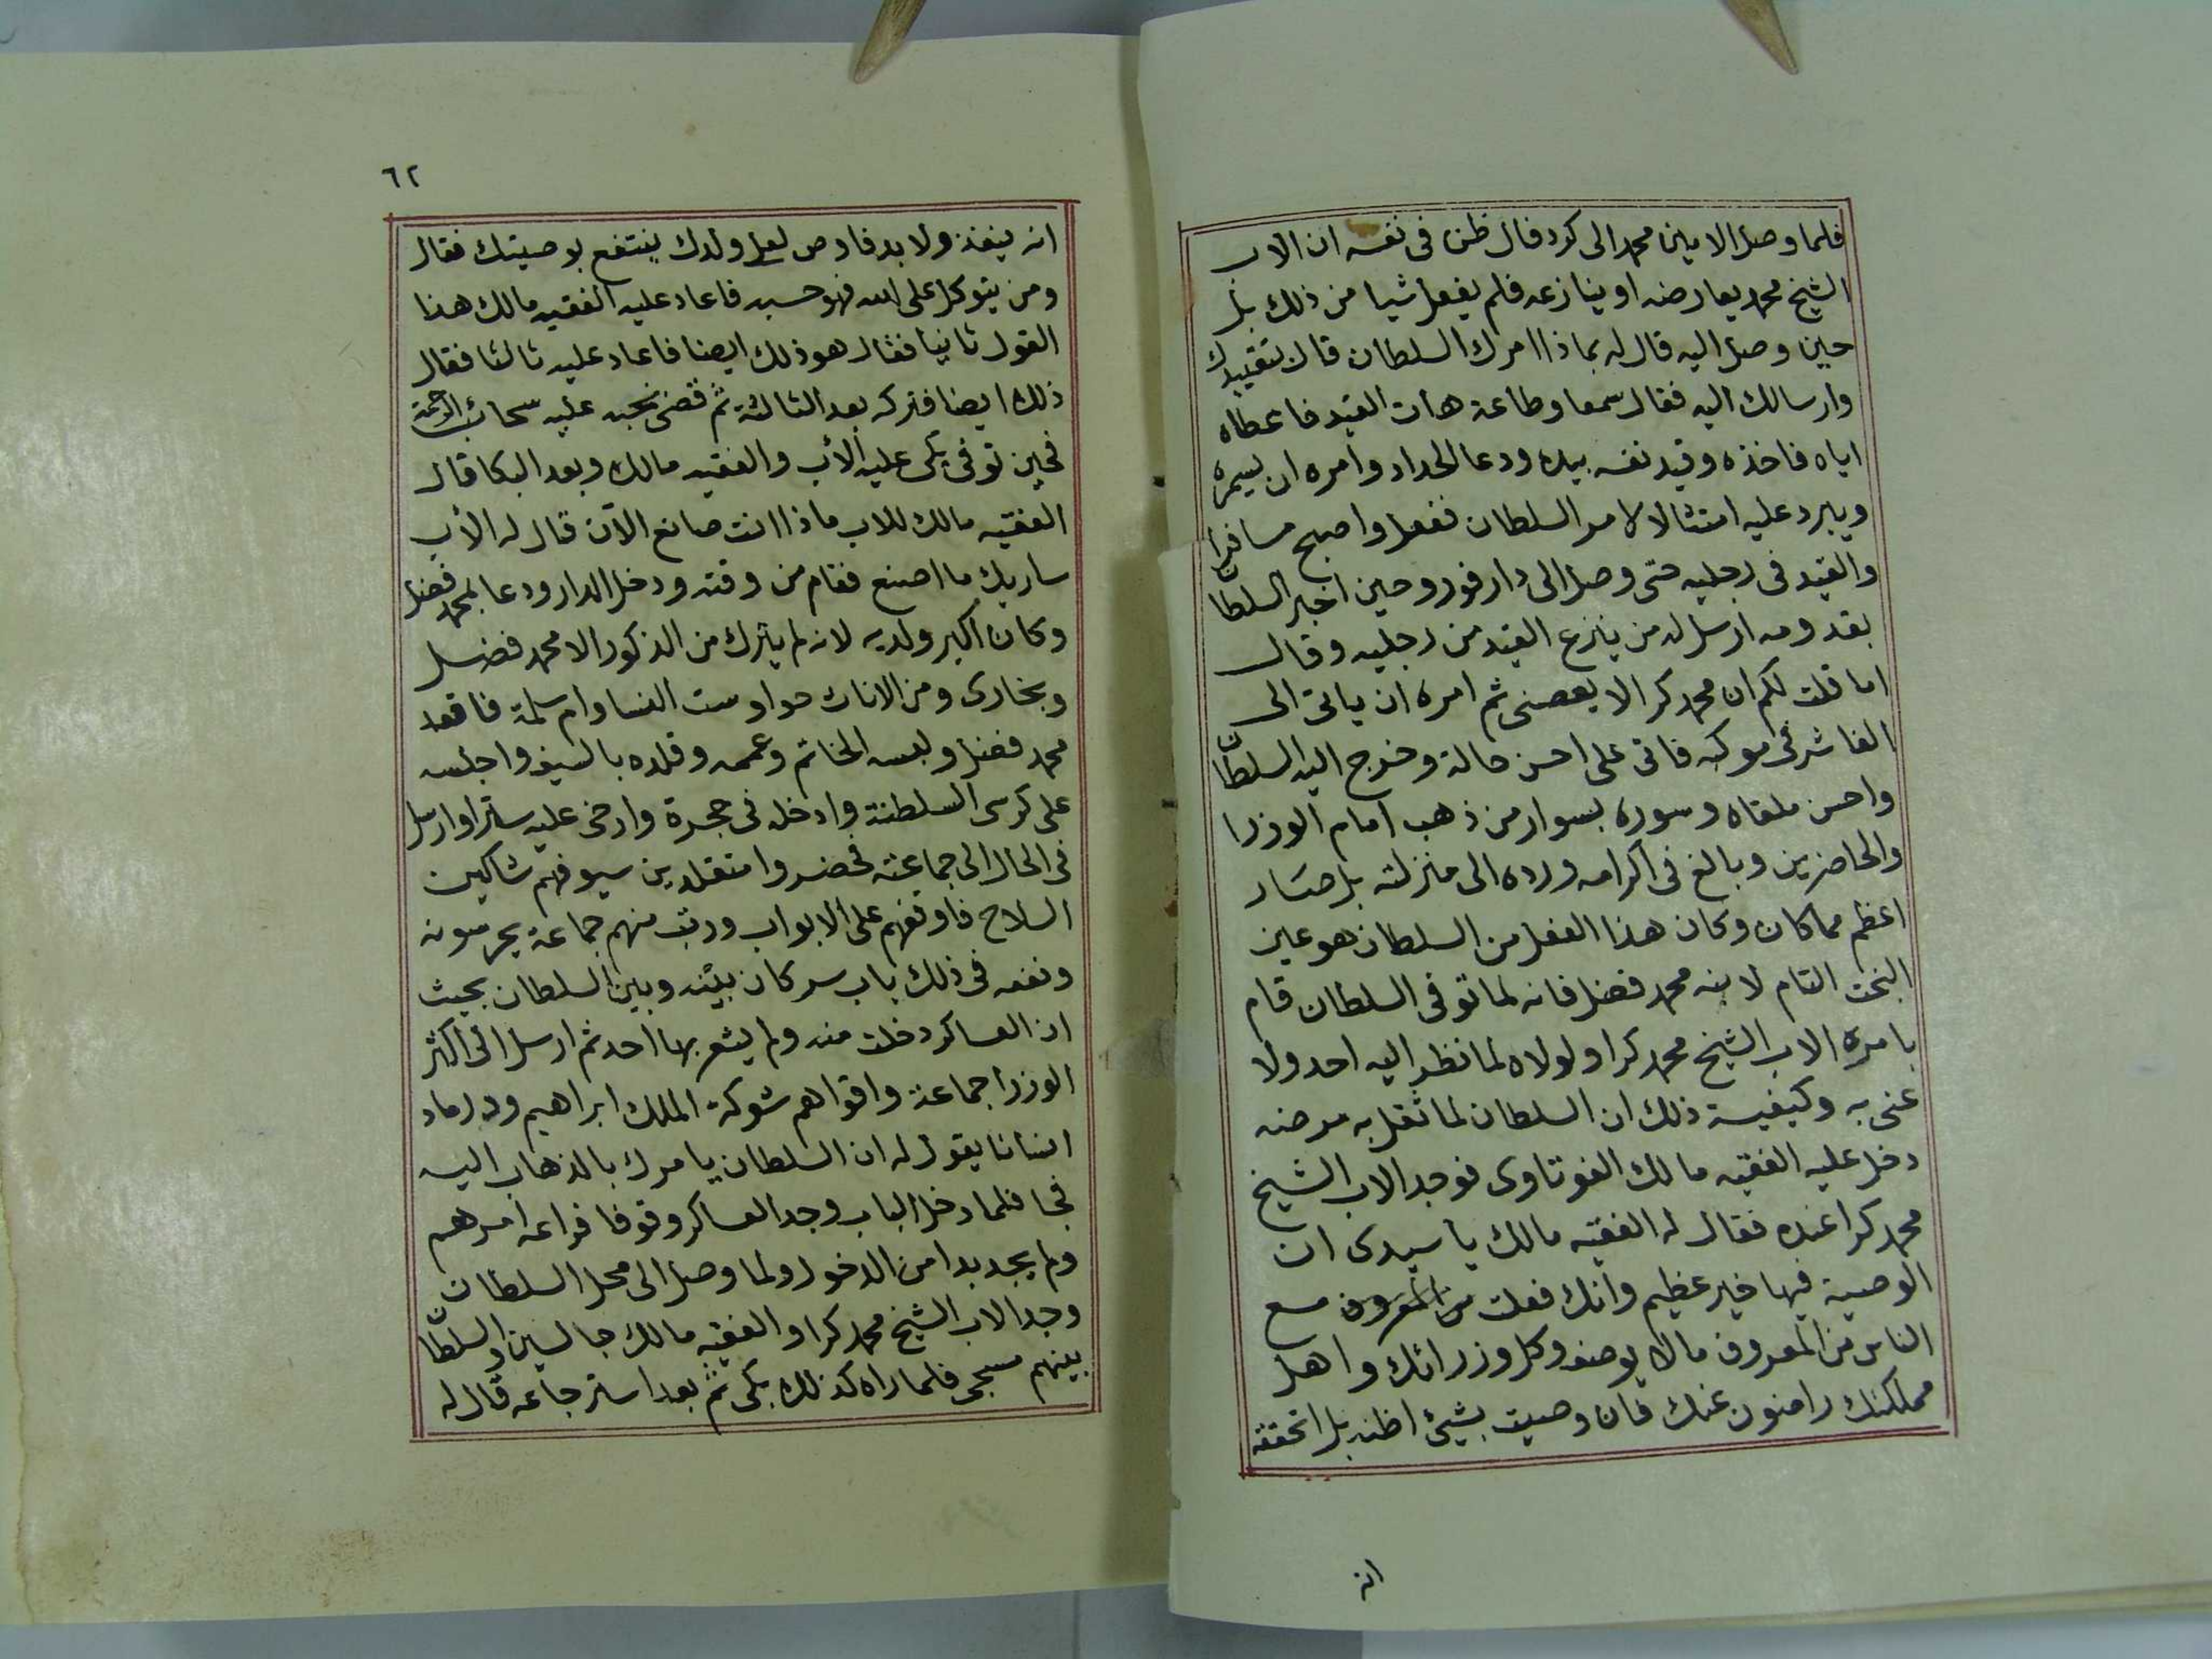 فلما وصل الامين محمد الى كردفال ظن فى نفسه ان الاب
الشيخ محمد يعارضه او ينازعه فلم يفعل شيا من ذلك بل
حين وصل اليه قال له بماذا امرك السلطان قال بتقييدك
وارسالك اليه فقال سمعا وطاعة هات القيد فاعطاه
اياه فاخذه وقيد نفسه بيده ودعا الحداد وامره ان يسمره
ويبرد عليه امتثالا لامر السلطان ففعل واصبح مسافرا
والقيد فى رجليه حتى وصل الى دارفور وحين اخبر السلطان
بقدومه ارسل له من ينزع القيد من رجليه وقال
اما قلت لكم ان محمد كرا لا يعصنى ثم امره ان ياتى الى
الفاشر فى موكبه فاتى على احسن حالة وخرج اليه السلطان
واحسن ملقاه وسوره بسوار من ذهب امام الوزرا
والحاضرين وبالغ فى اكرامه ورده الى منزلته بل صار
اعظم مما كان وكان هذا الفعل من السلطان هو عين
البخت التام لابنه محمد فضل فانه لما توفى السلطان قام
بامره الاب الشيخ محمد كرا ولولاه لما نظر اليه احد ولا
عنى به وكيفية ذلك ان السلطان لما ثقل به مرضه
دخل عليه الفقيه مالك الفوتاوى فوجد الاب الشيخ
محمد كرا عنده فقال له الفقيه مالك يا سيدى ان
الوصية فيها خير عظيم وانك فعلت من المعروف مع
الناس من المعروف مالا يوصف وكل وزرائك واهل
مملكتك راضون عنك فان وصيت بشيئ اظنه بل اتحققه
انه
٦٢
انه ينفذ ولا بد فاوص لعل ولدك ينتفع بوصيتك فقال
ومن يتوكل على الله فهو حسبه فاعاد عليه الفقيه مالك هذا
القول ثانيا فقال هو ذلك ايضا فاعاد عليه ثالثا فقال
ذلك ايضا فتركه بعد الثالثة ثم قضى نحبه عليه سحائب الرحمة
فحين توفى بكى عليه الأب والفقيه مالك وبعد البكا قال
الفقيه مالك للاب ماذا انت صانع الآن قال له الأب
ساريك ما اصنع فقام من وقته ودخل الدار ودعا بمحمد فضل
وكان اكبر ولديه لانه لم يترك من الذكور الا محمد فضل
وبخارى ومن الاناث حوا وست النسا وام سلمة فاقعد
محمد فضل ولبسه الخاتم وعممه وقلده بالسيف واجلسه
على كرسى السلطنة وادخله فى حجرة وارخى عليه سترا وارسل
فى الحال الى جماعته فحضروا متقلدين سيوفهم شاكين
السلاح فاوقفهم على الابواب ورتب منهم جماعة يحرسونه
ونفعه فى ذلك باب سر كان بينه وبين السلطان بحيث
ان العساكر دخلت منه ولم يشعر بها احد ثم ارسل الى اكثر
الوزرا جماعة واقواهم شوكة الملك ابراهيم ود رماد
انسانا يقول له ان السلطان يامرك بالذهاب اليه
فجا فلما دخل الباب وجد العساكر وقوفا فراعه امرهم
ولم يجد بدا من الدخول ولما وصل الى محل السلطان
وجد الاب الشيخ محمد كرا والفقيه مالك جالسين والسلطان
بينهم مسجى فلما راه كذلك بكى ثم بعد استرجاعه قال له